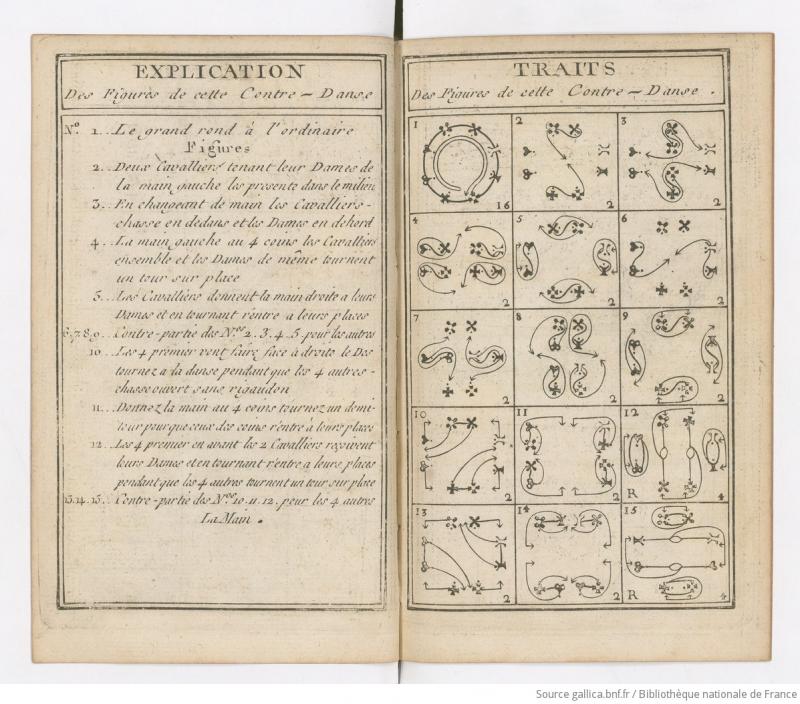 EXPLICATION
Des Figures de cette Contre-Danse
N.º 1.. Le grand rond à l'ordinaire
Figures
2.. Deux Cavalliers tenant leur Dames de
la main gauche les presente dans le milieu
3.. En changeant de main les Cavalliers-
chasse en dedans et les Dames en dehord
4.. La main gauche au 4 coins les Cavalliers
ensemble et les Dames de même tournent
un tour sur place
5.. Les Cavalliers donnent la main droite a leurs
Dames et en tournant r'entre a leurs places
6.7.8.9.. Contre-partie des Nos 2. 3. 4. 5. pour les autres
10.. Les 4 premier vont faire face à droite le Dos
tournez a la danse pendant que les 4 autres-
chasse ouvert sans rigaudon
11.. Donnez la main au 4 coins tournez un demi-
tour pour que ceux des coins r'entre à leurs places
12.. Les 4 premier en avant les 2 Cavalliers reçoivent
leurs Dames et en tournant r'entre a leurs places
pendant que les 4 autres tournent un tour sur place
13.14.15.. Contre-partie des Nos 10. 11. 12. pour les 4 autres
La Main.
TRAITS
Des Figures de cette Contre-Danse.
1
16
2
2
3
2
4
2
5
2
6
2
7
2
8
2
9
2
10
2
11
2
12
R
4
13
2
14
2
15
R
4
Source gallica.bnf.fr / Bibliothèque nationale de France